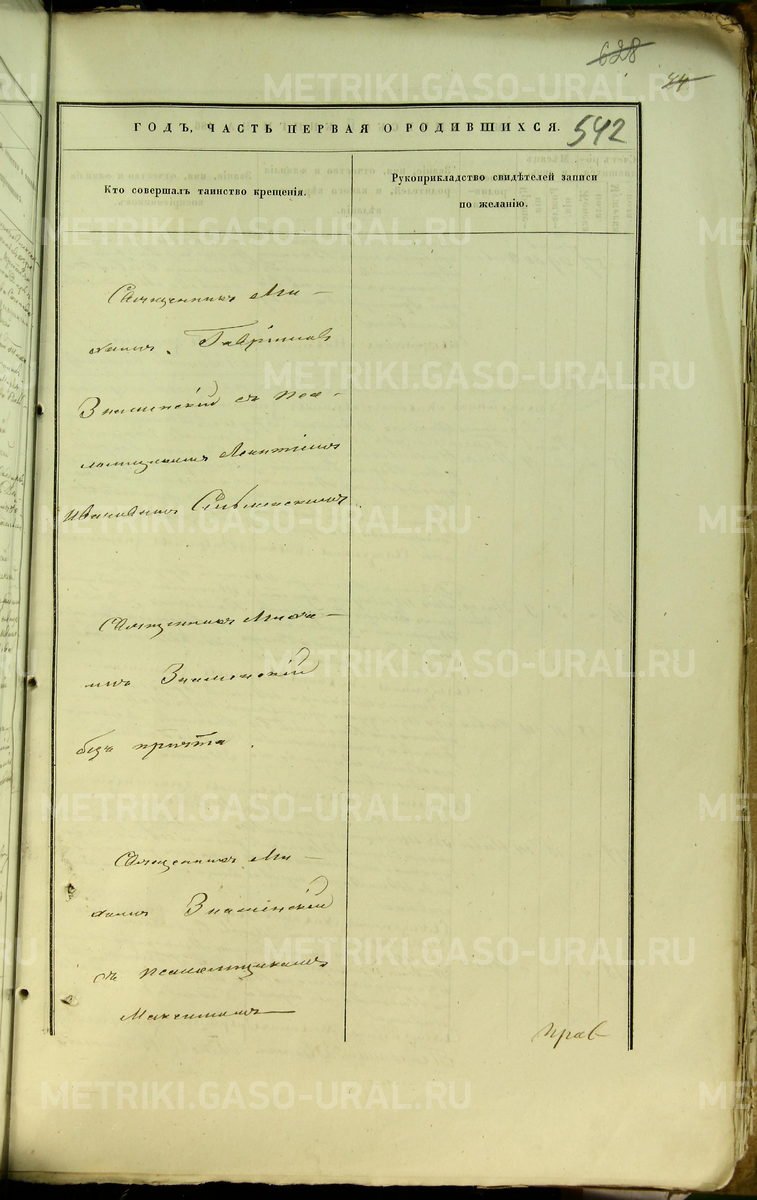 628
84
ГОДЪ, ЧАСТЬ ПЕРВАЯ О РОДИВШИХСЯ.
542
Кто совершалъ таинство крещенія.
Рукоприкладство свидѣтелей записи
по желанію.
Священникъ Ми-
хаилъ Гавріиловъ
Знаменскій съ пса-
ломщикомъ Леонтіемъ
Ивановымъ
Священникъ Михаи-
илъ Знаменскій
безъ причта.
Священникъ Ми-
хаилъ Знаменскій
съ псаломщикомъ
Максимомъ
прав
METRIKI.GASO-URAL.RU